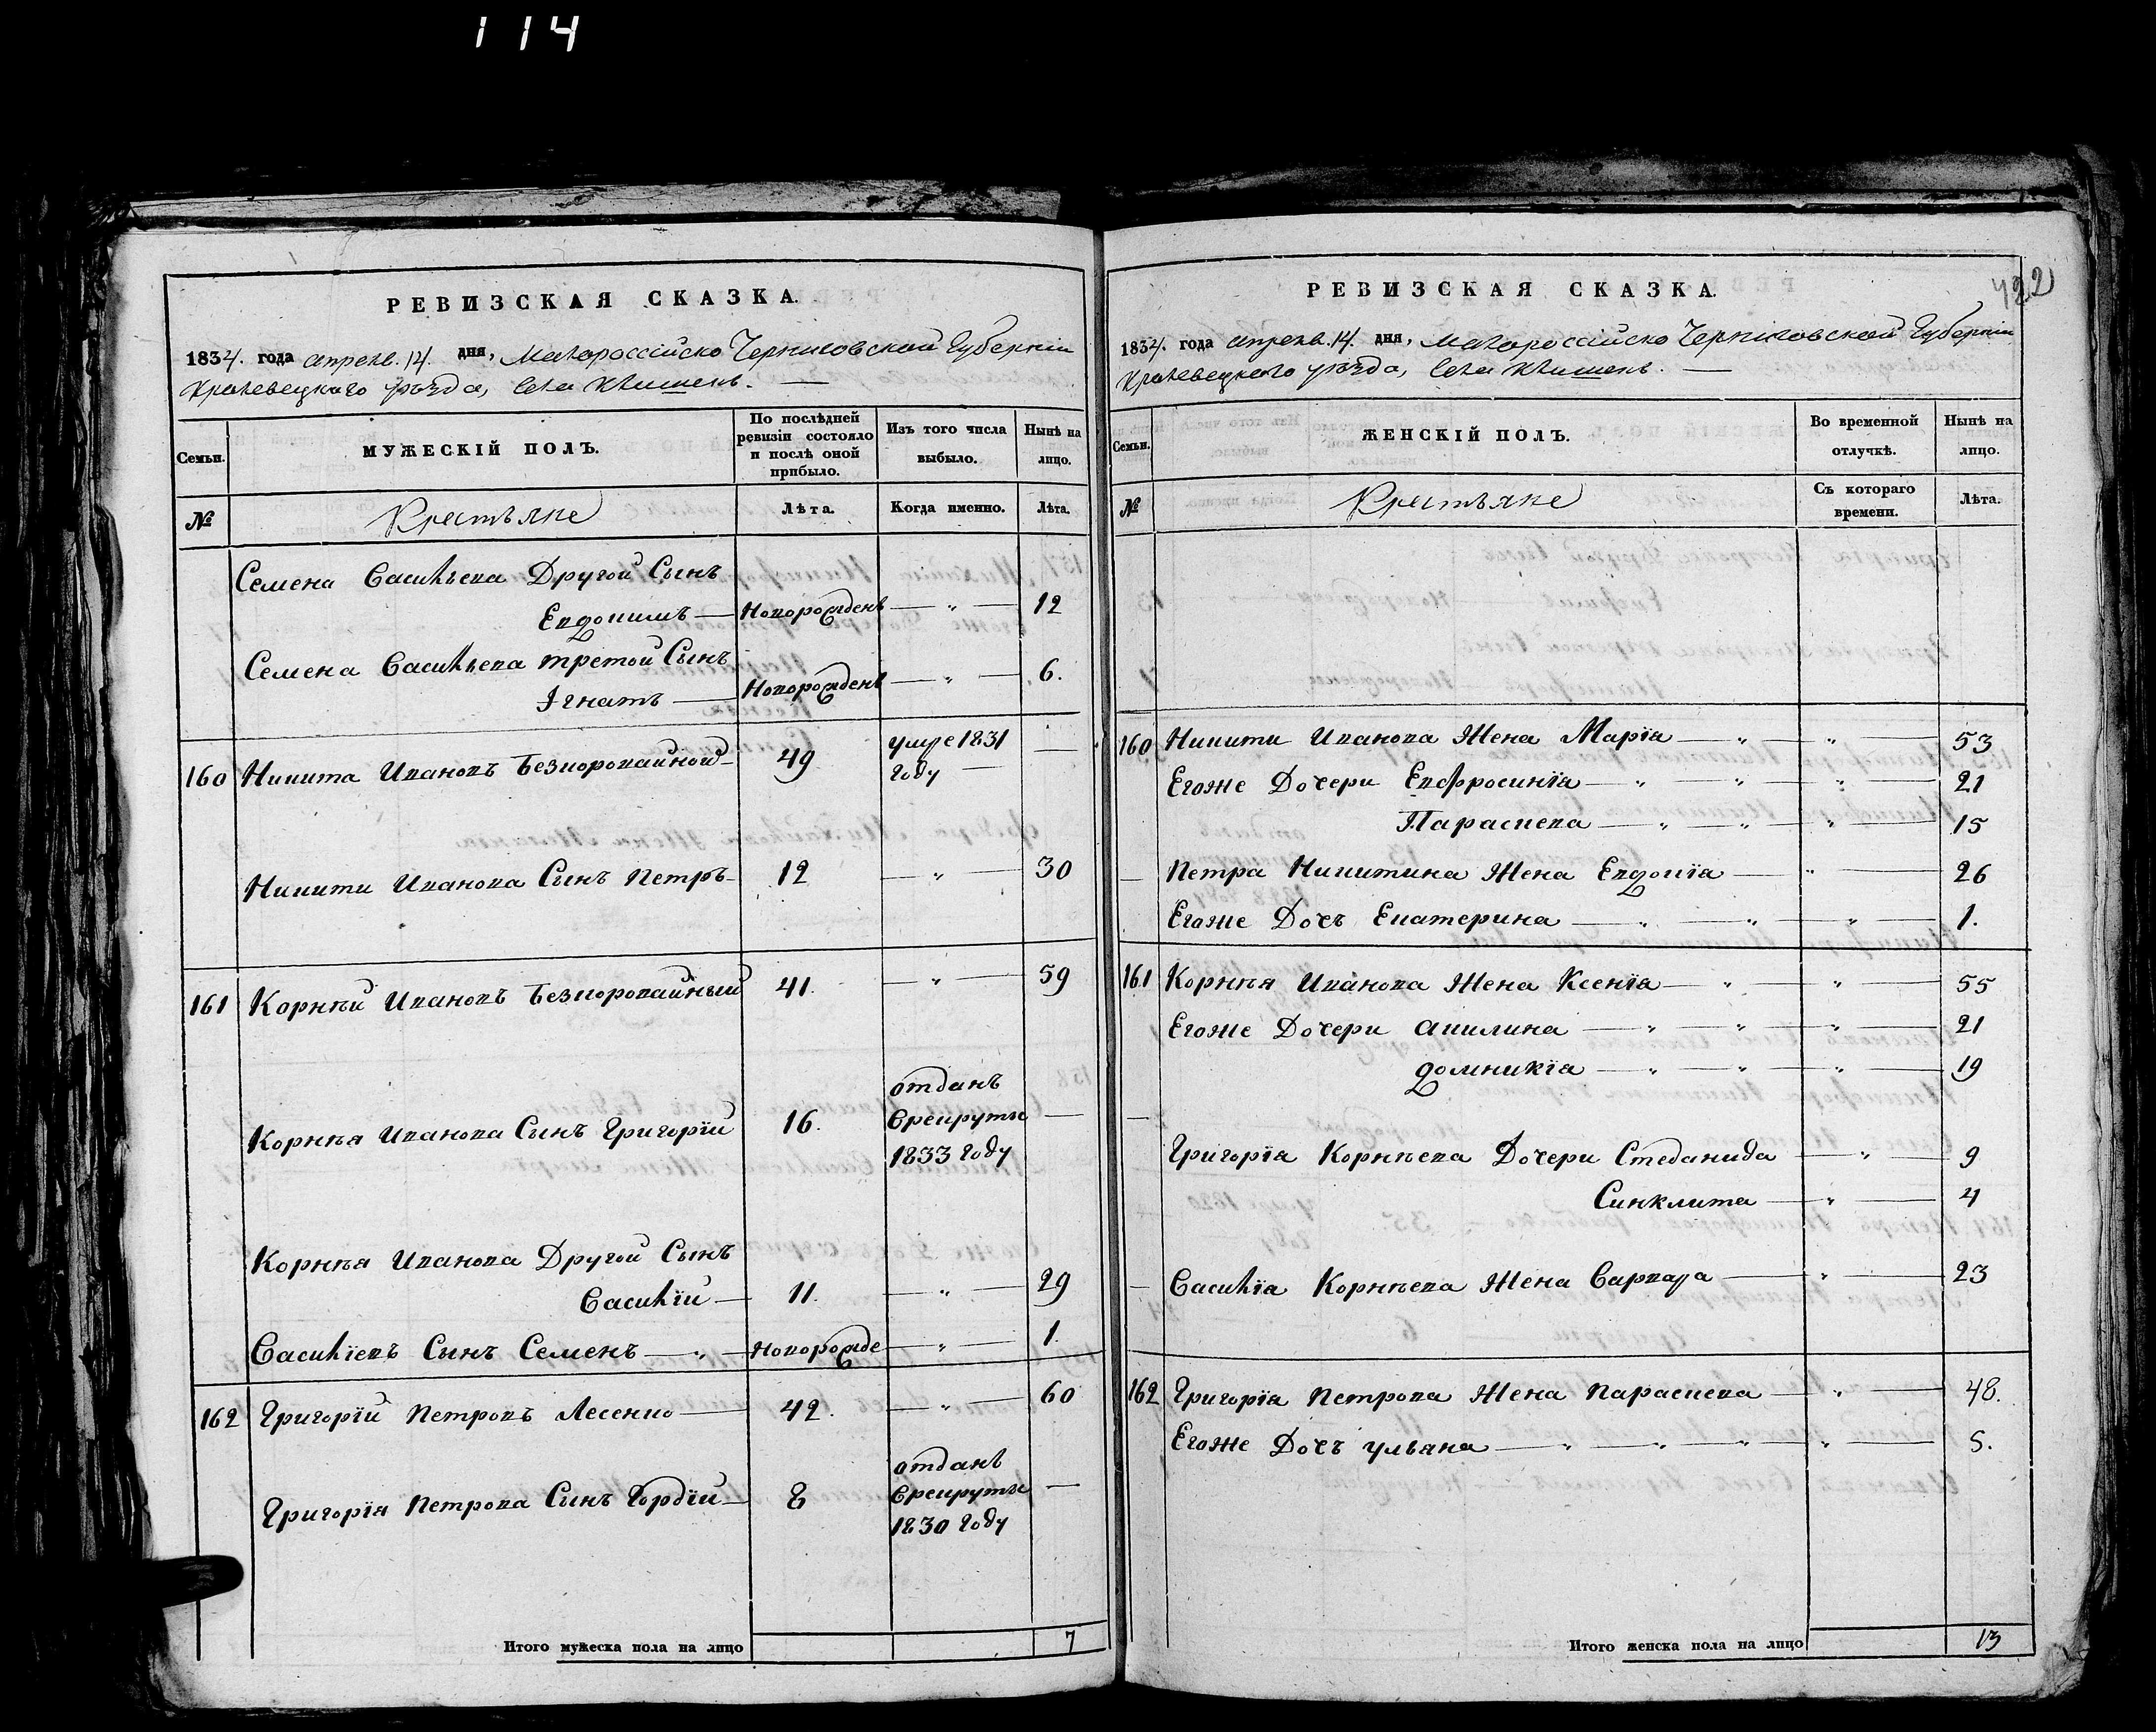 114
РЕВИЗСКАЯ СКАЗКА.
1834. года апреля. 14. дня, Малороссійско Черниговской Губерніи
Кролевецкаго уѣзда, Села Клишекъ.
Семьи.
МУЖЕСКІЙ ПОЛЪ.
По послѣдней ревизіи состояло и послѣ оной прибыло.
Изъ того числа выбыло.
Нынѣ на лицо.
№
Крестьяне
Лѣта.
Когда именно.
Лѣта.
Семена Васильева Другой Сынъ
Евдокимъ — Новорожденъ — " — 12
Семена Васильева третой Сынъ
Игнатъ — Новорожденъ — " — 6.
160 Никита Ивановъ Безкоровайной 49 умре 1831 году —
Никити Иванова Сынъ Петръ 12 — " — 30
161 Корнѣй Ивановъ Безкоровайный 41. — " — 59
Корнѣя Иванова Сынъ Григорій 16. отданъ Врекруты 1833 году —
Корнѣя Иванова Другой Сынъ
Василій — 11. — " — 29
Василіевъ Сынъ Семенъ — " — Новорожде — " — 1.
162 Григорій Петровъ Лесенко — 42. — " — 60
Григорія Петрова Синъ Гордій — 8 отданъ Врекруты 1830 году —
Итого мужеска пола на лицо 7
422
РЕВИЗСКАЯ СКАЗКА.
1834. года апреля. 14. дня, Малороссійско Черниговской Губерніи
Кролевецкаго уѣзда, Села Клишекъ.
Семьи.
ЖЕНСКІЙ ПОЛЪ.
Во временной отлучкѣ.
Нынѣ на лицо.
№
Крестьяне
Съ котораго времени.
Лѣта.
160 Никити Иванова Жена Марія — " — " — 53
Егоже Дочери Евфросинія — " — " — " — 21
Параскева — " — " — " — 15
Петра Никитина Жена Евдокія — " — 26
Егоже Дочъ Екатерина — " — " — " — 1.
161 Корнѣя Иванова Жена Ксенія — " — " — 55
Егоже Дочери Акилина — " — " — " — 21
Домникія — " — " — " — 19
Григорія Корнѣева Дочери Стефанида — " — 9
Синклита — " — 4
Василія Корнѣева Жена Варвара — " — 23
162 Григорія Петрова Жена Параскева — " — 48.
Егоже Дочъ Ульяна — " — " — " — " — 5.
Итого женска пола на лицо 13